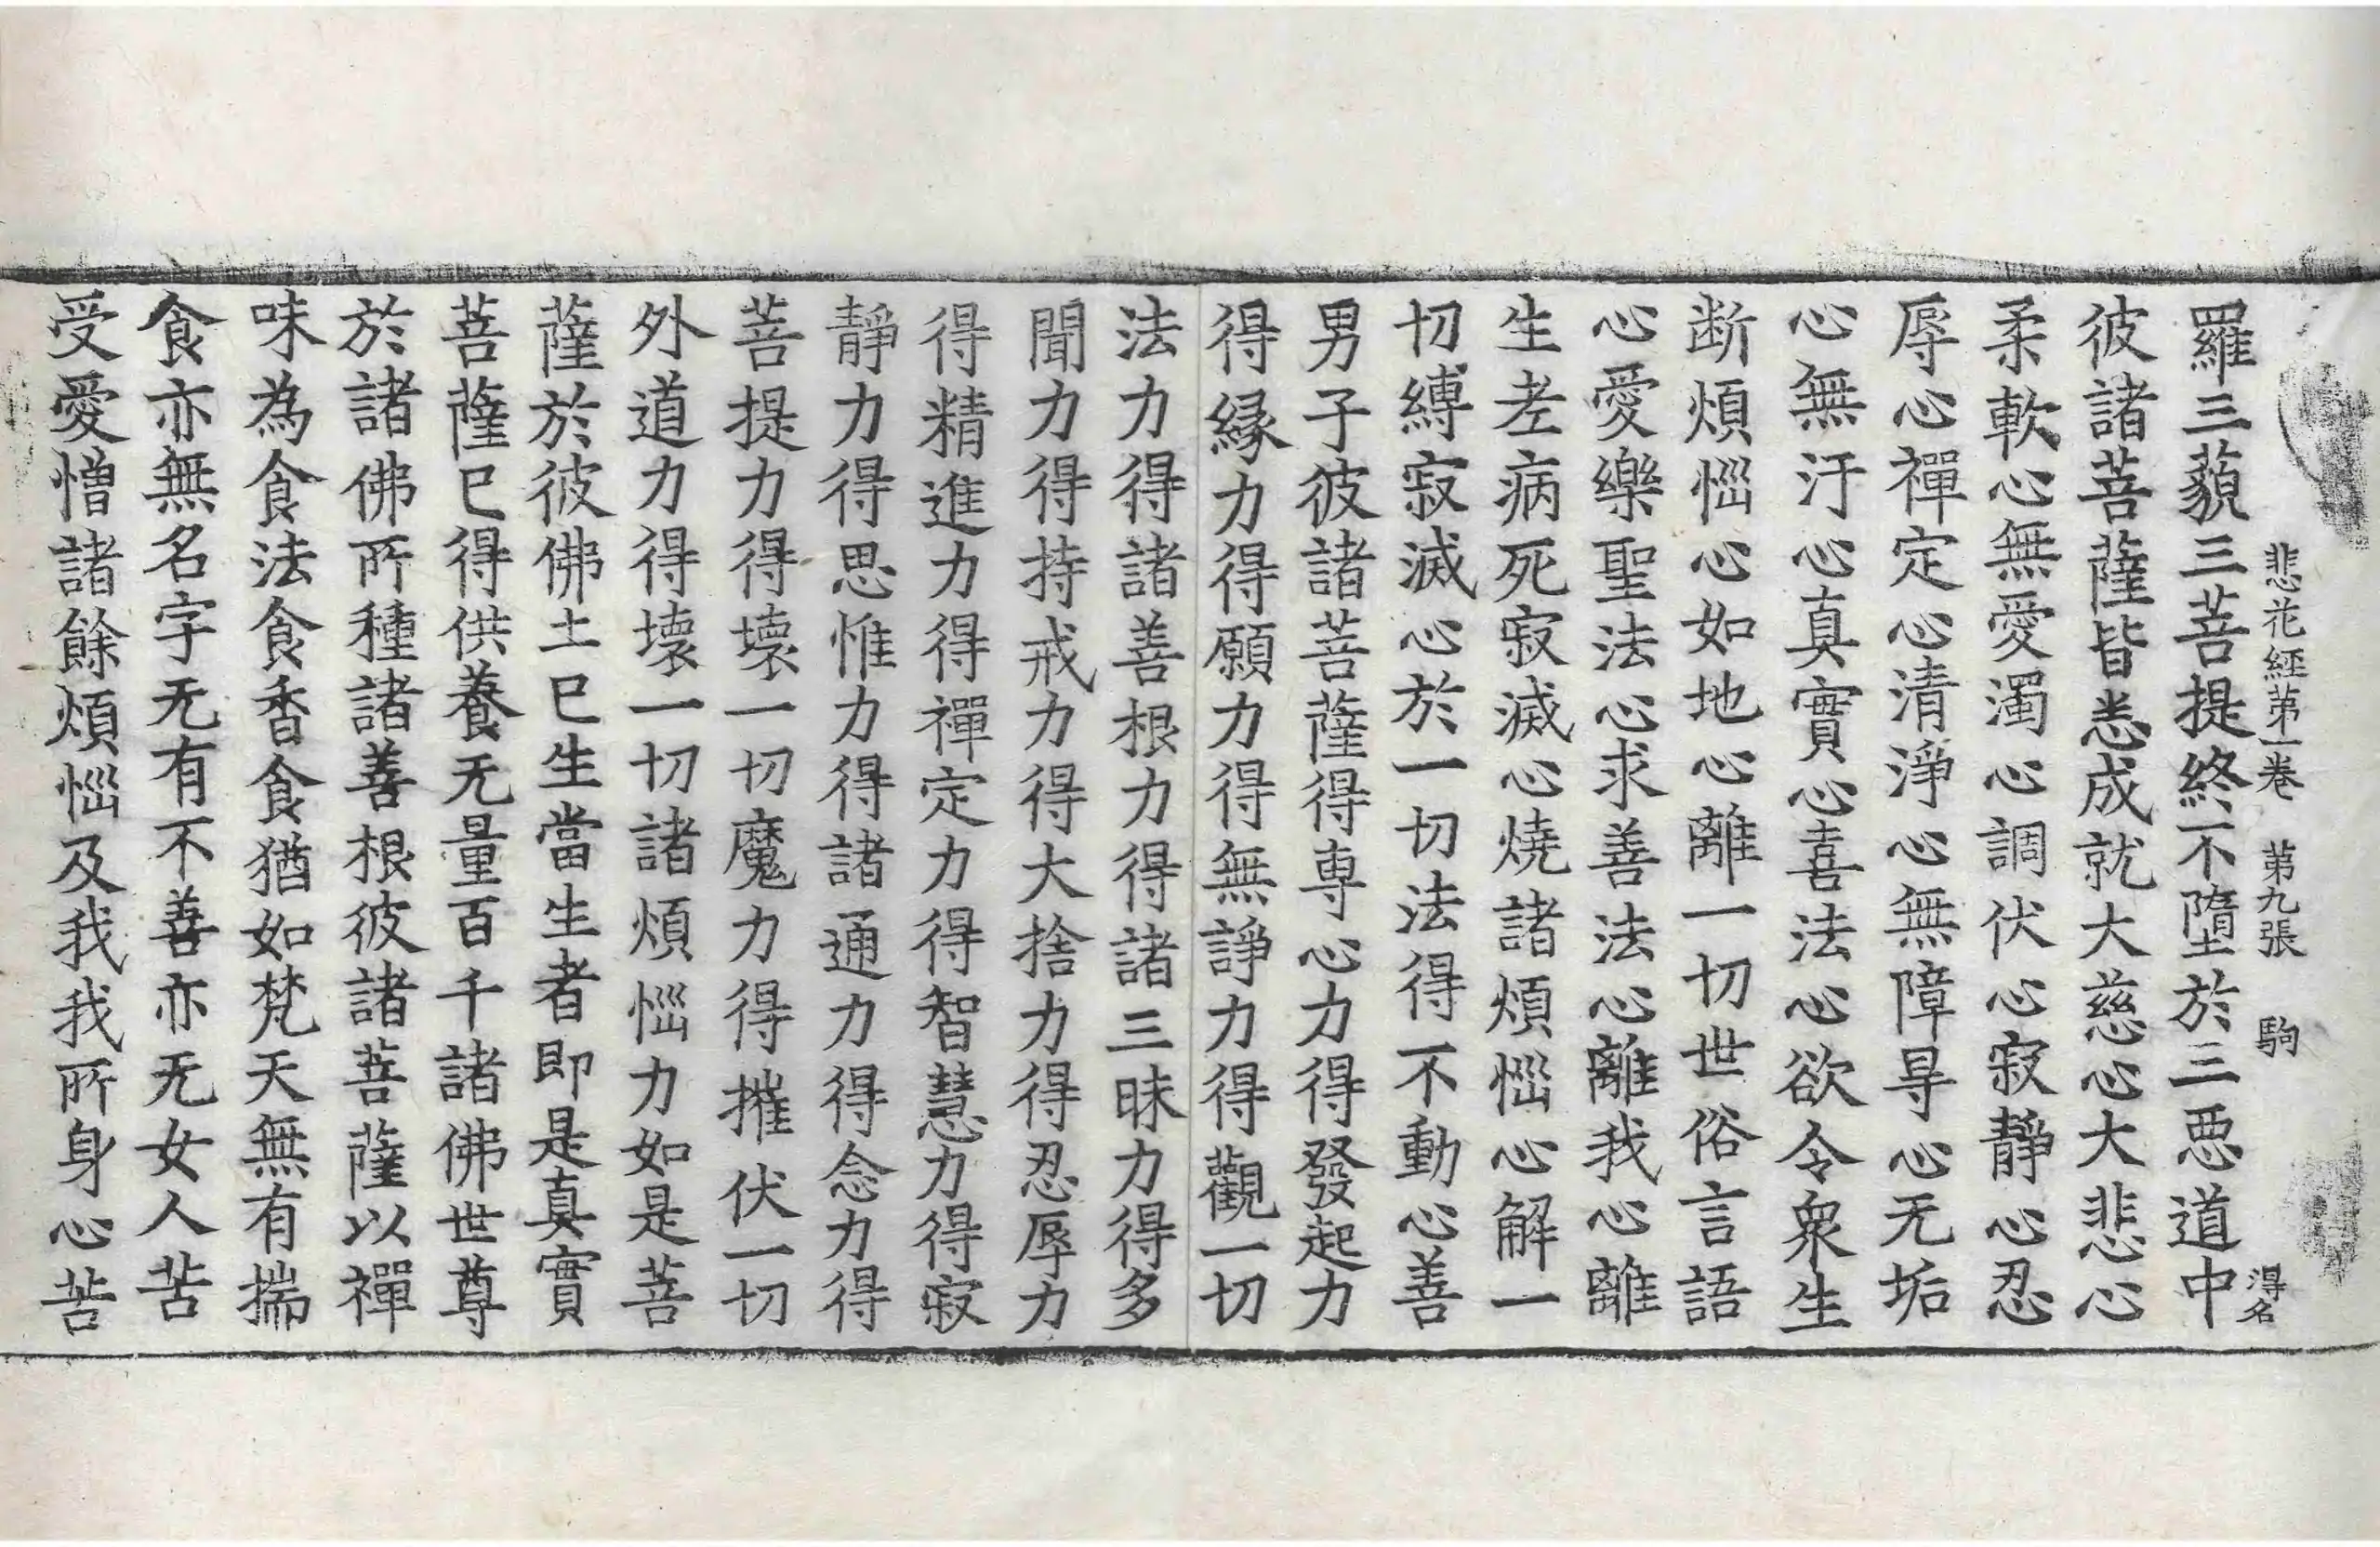 悲花經苐一卷　苐九張　駒　淂名
羅三藐三菩提終不墮於三惡道中
彼諸菩薩皆悉成就大慈心大悲心
柔軟心無愛濁心調伏心寂靜心忍
辱心禪定心清淨心無障㝵心无垢
心無汙心真實心喜法心欲令衆生
断煩惱心如地心離一切世俗言語
心愛樂聖法心求善法心離我心離
生老病死寂滅心燒諸煩惱心解一
切縛寂滅心於一切法得不動心善
男子彼諸菩薩得專心力得發起力
得縁力得願力得無諍力得觀一切
法力得諸善根力得諸三昧力得多
聞力得持戒力得大捨力得忍辱力
得精進力得禪定力得智慧力得寂
靜力得思惟力得諸通力得念力得
菩提力得壞一切魔力得摧伏一切
外道力得壞一切諸煩惱力如是菩
薩於彼佛土已生當生者即是真實
菩薩已得供養无量百千諸佛世尊
於諸佛所種諸善根彼諸菩薩以禪
味為食法食香食猶如梵天無有揣
食亦無名字无有不善亦无女人苦
受愛憎諸餘煩惱及我我所身心苦